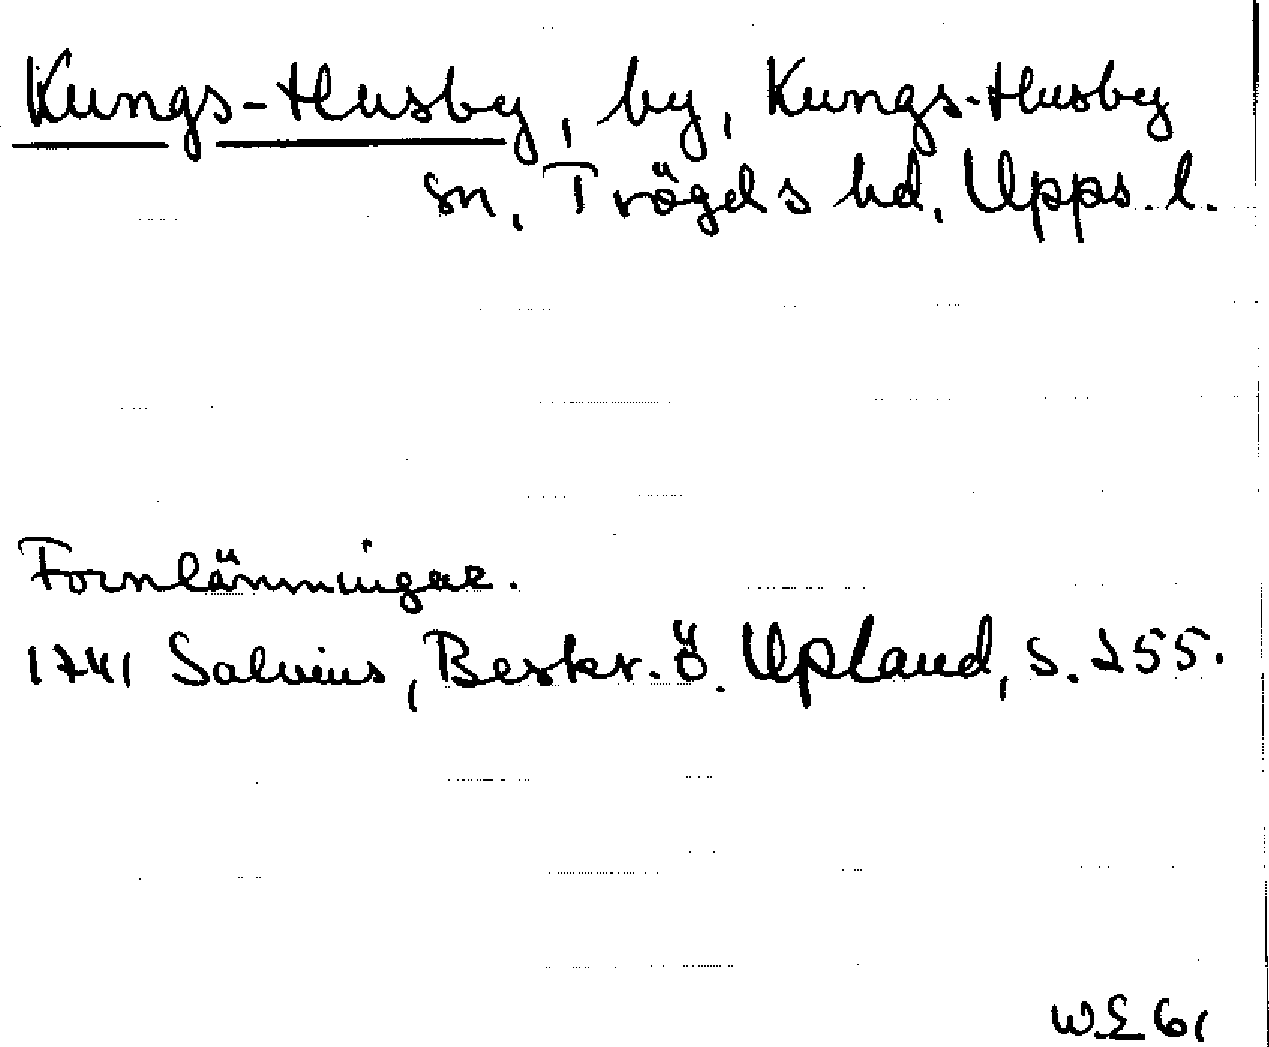 Kungs-Husby, by, Kungs-Husby
sn, Trögds hd, Upps. l.
Fornlämningar.
1741 Salvius, Beskr. ö. Upland, s. 255.
WE 61